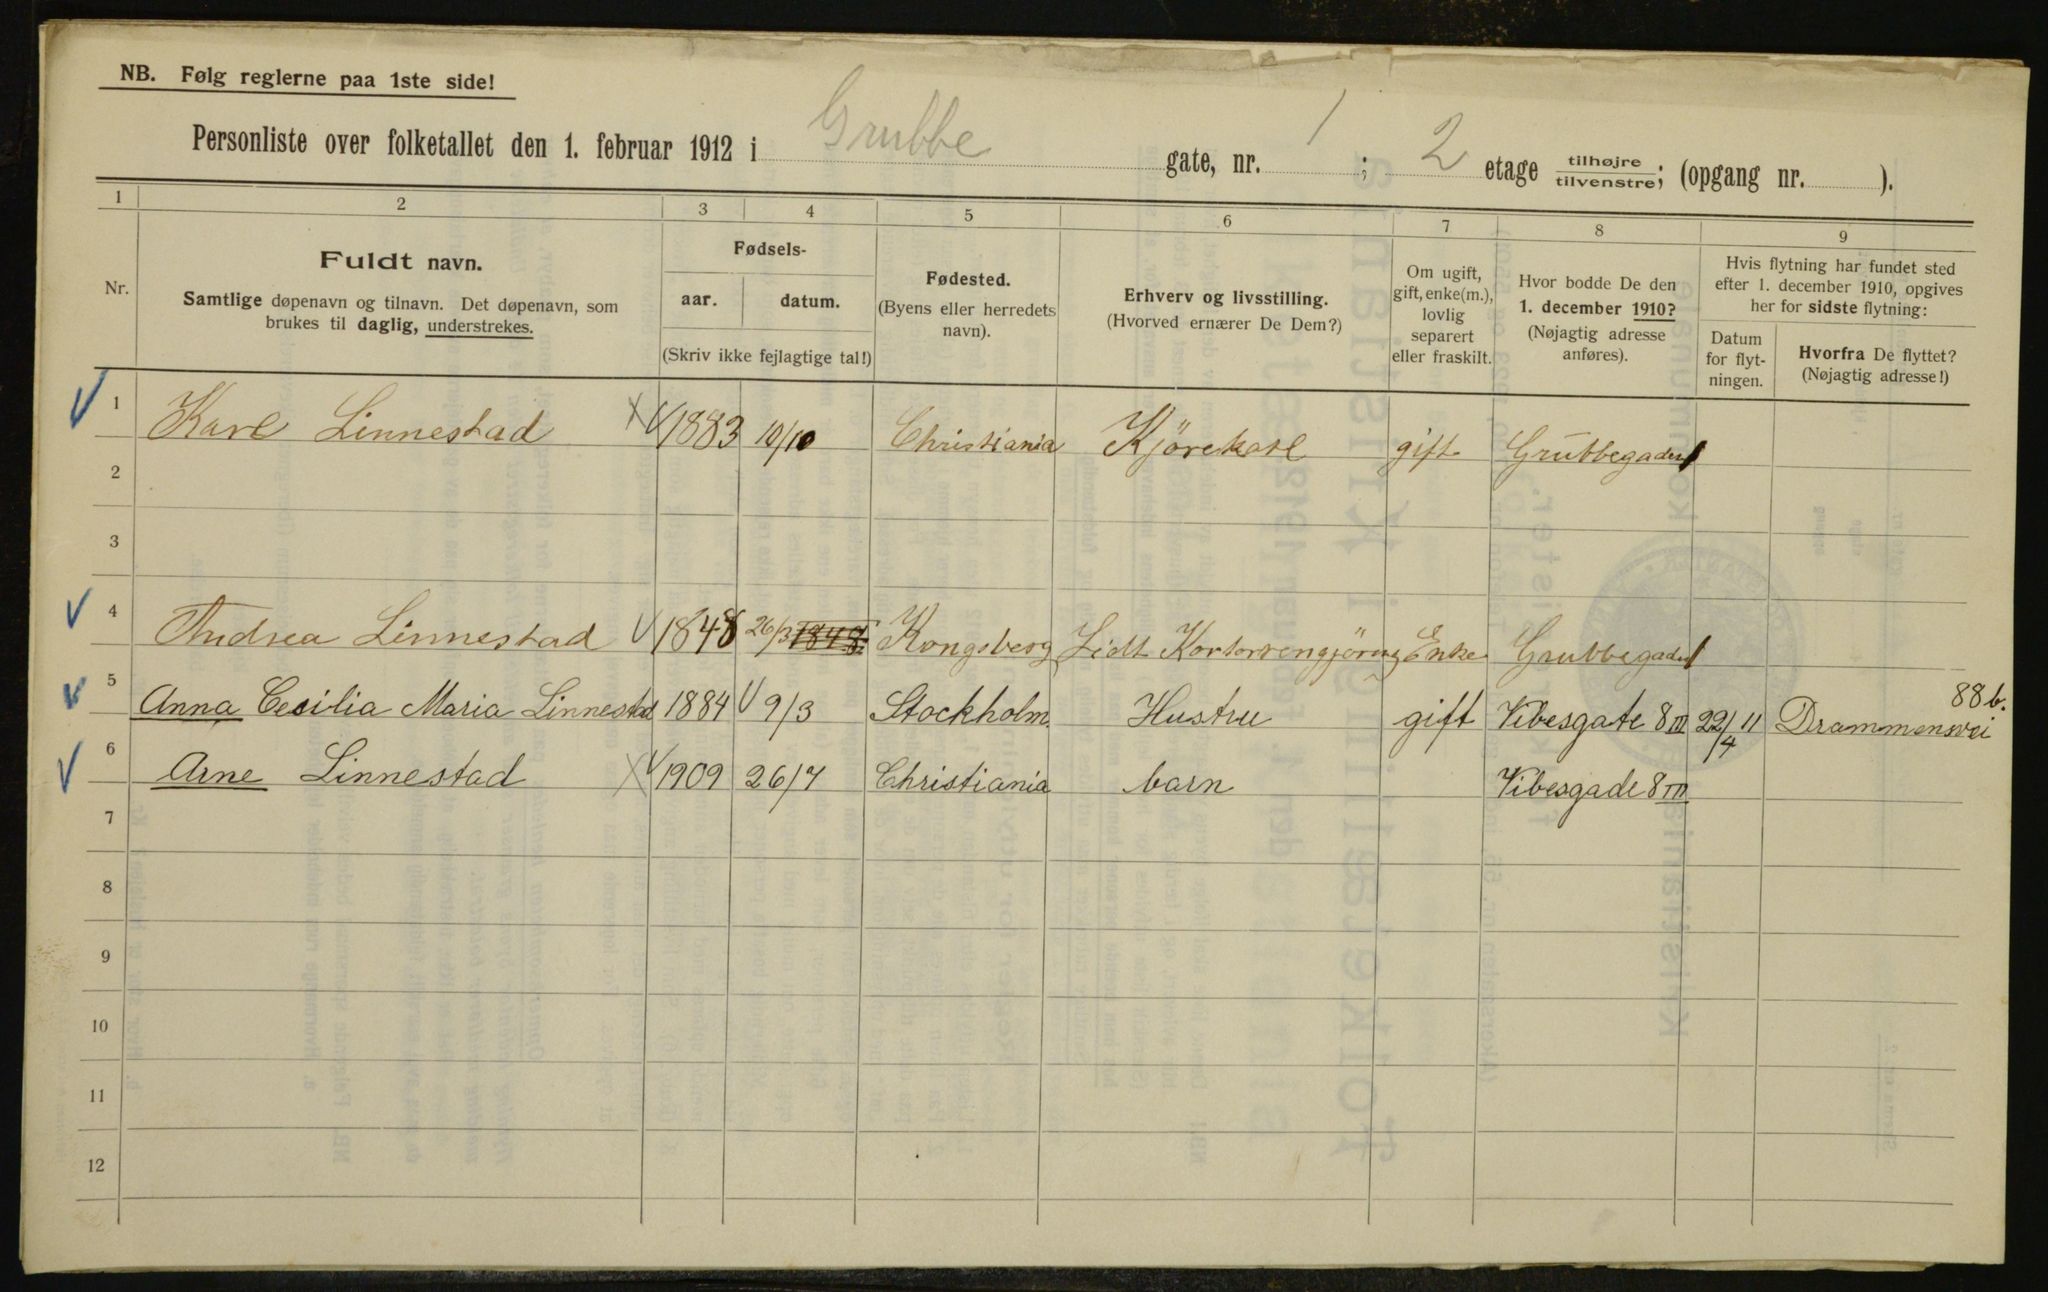 NB. Følg reglerne paa 1ste side!
Personliste over folketallet den 1. februar 1912 i Grubbe gate, nr. 1; 2 etage tilhøjre tilvenstre; (opgang nr. ).
1 2 3 4 5 6 7 8 9
Nr.
Fuldt navn.
Samtlige døpenavn og tilnavn. Det døpenavn, som
brukes til daglig, understrekes.
Fødsels-
aar. datum.
(Skriv ikke fejlagtige tal!)
Fødested.
(Byens eller herredets
navn).
Erhverv og livsstilling.
(Hvorved ernærer De Dem?)
Om ugift,
gift, enke(m.),
lovlig
separert
eller fraskilt.
Hvor bodde De den
1. december 1910?
(Nøjagtig adresse
anføres).
Hvis flytning har fundet sted
efter 1. december 1910, opgives
her for sidste flytning:
Datum
for flyt-
ningen.
Hvorfra De flyttet?
(Nøjagtig adresse!)
1 Karl Linnestad 1883 10/10 Christiania Kjørekarl gift Grubbegaden 1
2
3
4 Andrea Linnestad 1848 26/3 1848 Kongsberg Lidt Kontorrengjøring Enke Grubbegaden 1
5 Anna Cecilia Maria Linnestad 1884 9/3 Stockholm Hustru gift Vibesgate 8 III 22/4 11 Drammensvei 88 b.
6 Arne Linnestad 1909 26/7 Christiania barn Vibesgade 8 III
7
8
9
10
11
12